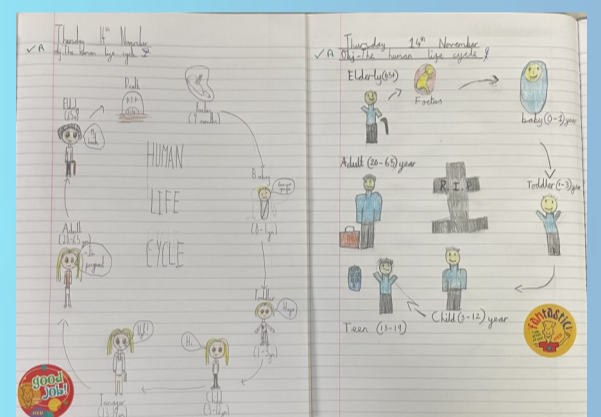 Thursday 14th November
✓A Obj-The human life cycle
Death
RIP
Foetus
(9 months)
Elderly
(65+)
HUMAN
LIFE
CYCLE
Baby
(0-1yr)
Adult
(20-65yr)
I'm pregnant
Toddler
(1-3yr)
Hi
Child
(3-12yr)
Teenager
(13-19)
good
job!
Thursday 14th November
✓A Obj-The human life cycle
Elderly (65+)
Foetus
baby (0-1) year
Adult (20-65) year
R.I.P
Toddler (1-3) year
Child (3-12) year
Teen (13-19)
fantastic!